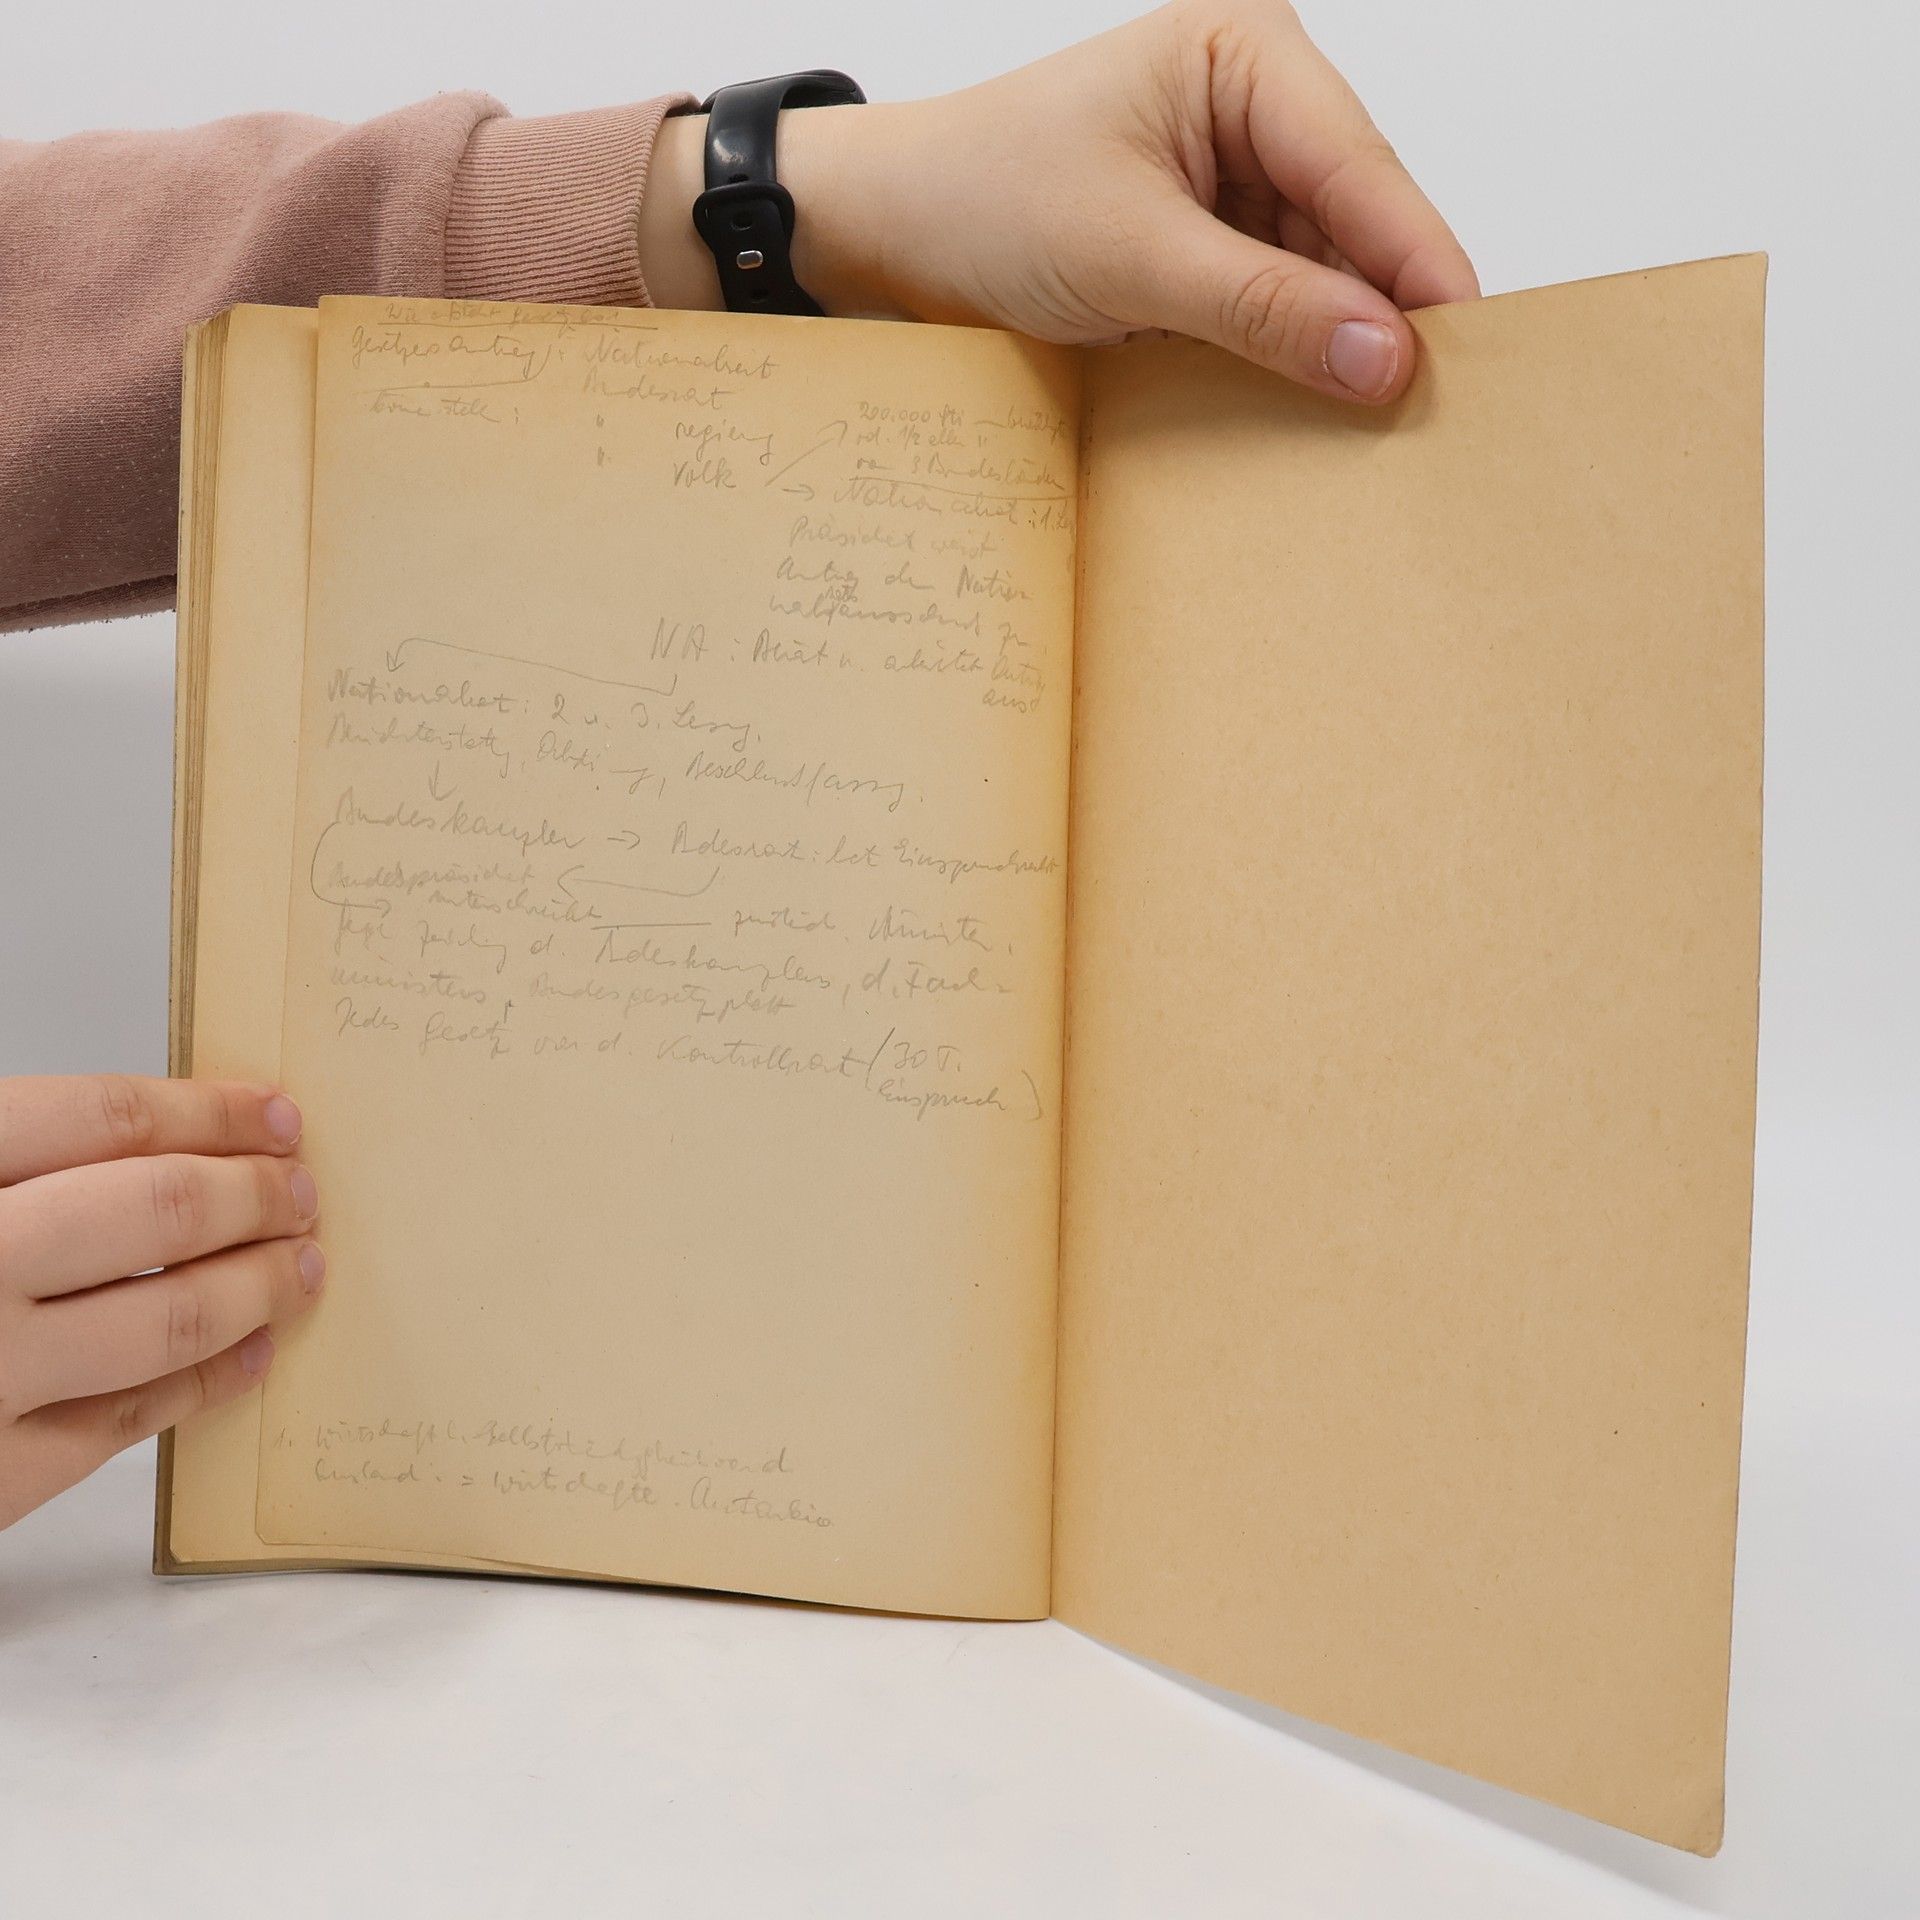 Wie entsteht Gesetz
Gesetzesantrag: Nationalrat
Bundesrat
" regierg
" Volk
200.000 sti
od. 1/2 aller "
von 3 Bundesländern
→ Nationalrat: 1. Les
Präsident weist
Antrag dem Natio
nalratsausschuß zu
NA: Berät u. arbeitet Antrag
aus
Nationalrat: 2 u. 3. Lesg.
Berichterstattg, Beschlussfassg.
Bundeskanzler → Bdesrat: hat Einspruchrecht
Bundespräsident
unterschreibt zuständ. Minister.
Gegenzeichng d. Bdeskanzlers, d. Fach=
ministers, Bundesgesetzplatt
Jedes Gesetz vor d. Kontrollrat (30 T.
Einspruch)
1. Wirtschaftl. Selbständigkeit
Ausland: = wirtschaftl. Autarkie